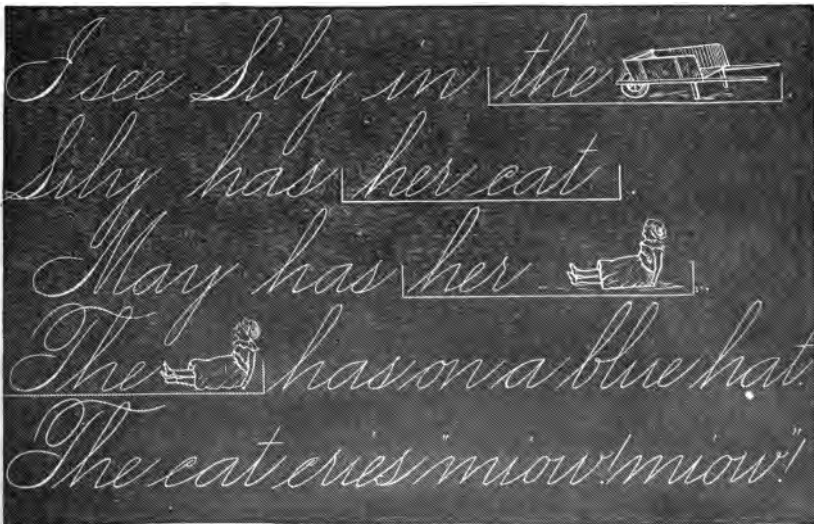 I see Lily in the .
Lily has her cat .
May has her .
The has on a blue hat.
The cat cries "miow! miow!"